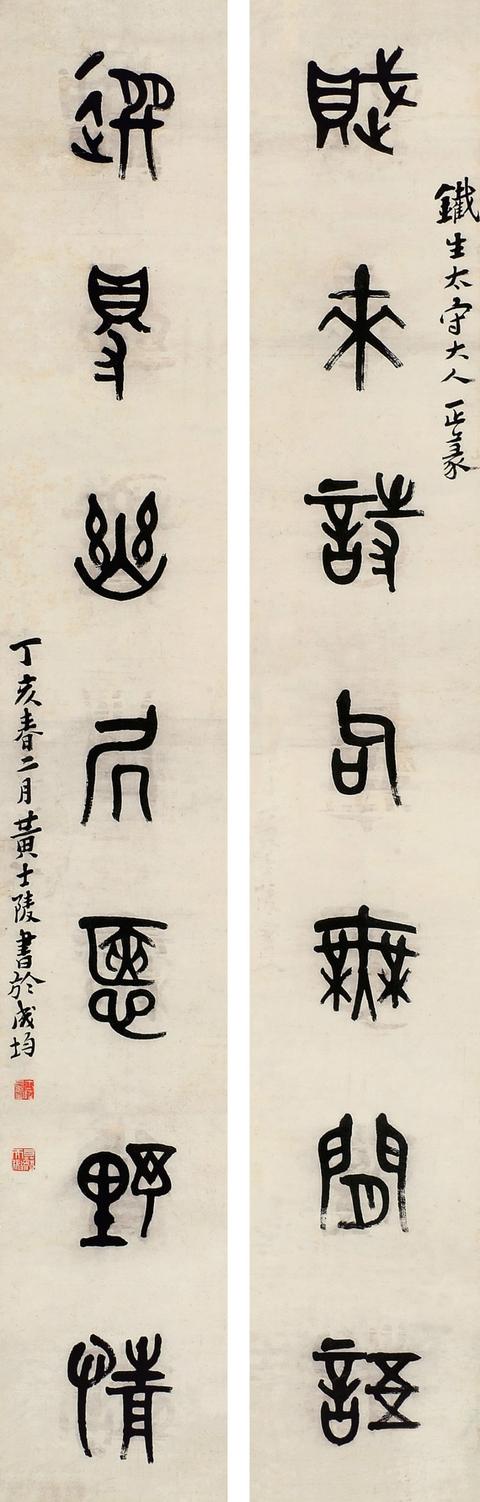 鐵生太守大人正篆
賦來詩句無閒語
選得幽凥愜野情
丁亥春二月黃士陵書於成均